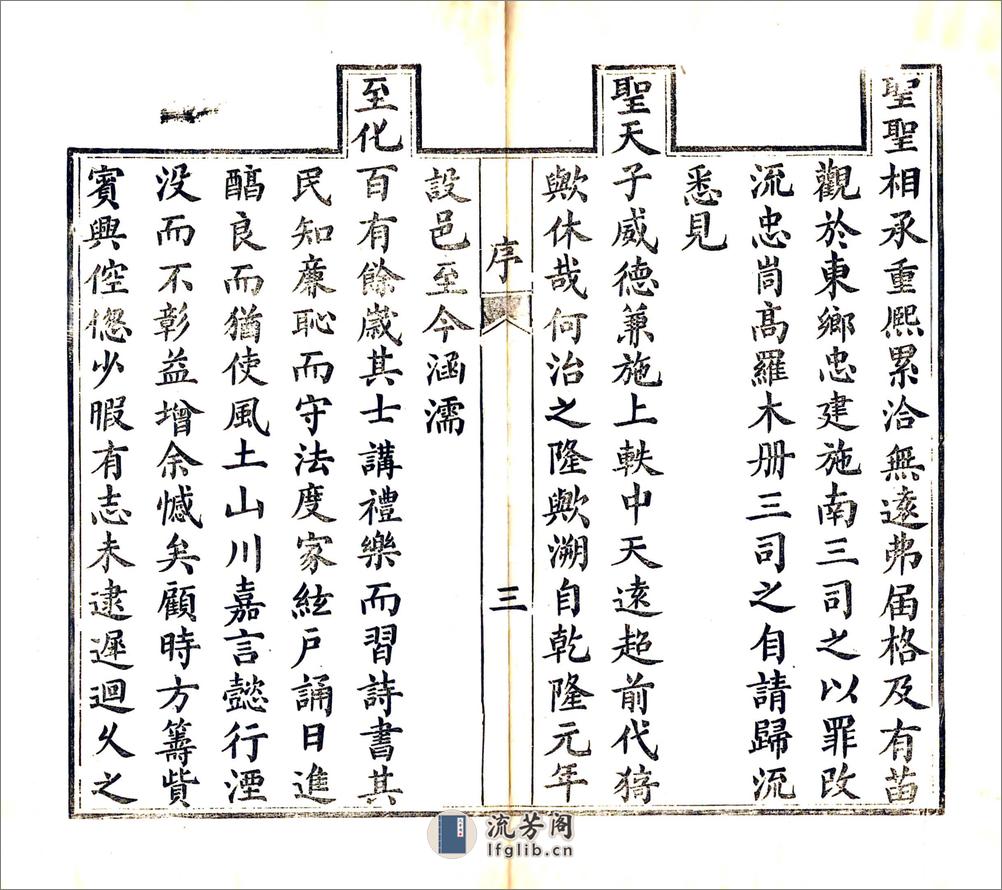 聖聖相承重熙累洽無遠弗届格及有苗
觀於東鄉忠建施南三司之以罪改
流忠峝髙羅木册三司之自請歸流
悉見
聖天子威德兼施上軼中天遠超前代猗
歟休哉何治之隆歟溯自乾隆元年
序
三
設邑至今涵濡
至化百有餘歲其士講禮樂而習詩書其
民知廉恥而守法度家絃户誦日進
醕良而猶使風土山川嘉言懿行湮
没而不彰益增余憾矣顧時方籌貲
賓興倥偬少暇有志未逮遲迴久之
流芳阁
lfglib.cn